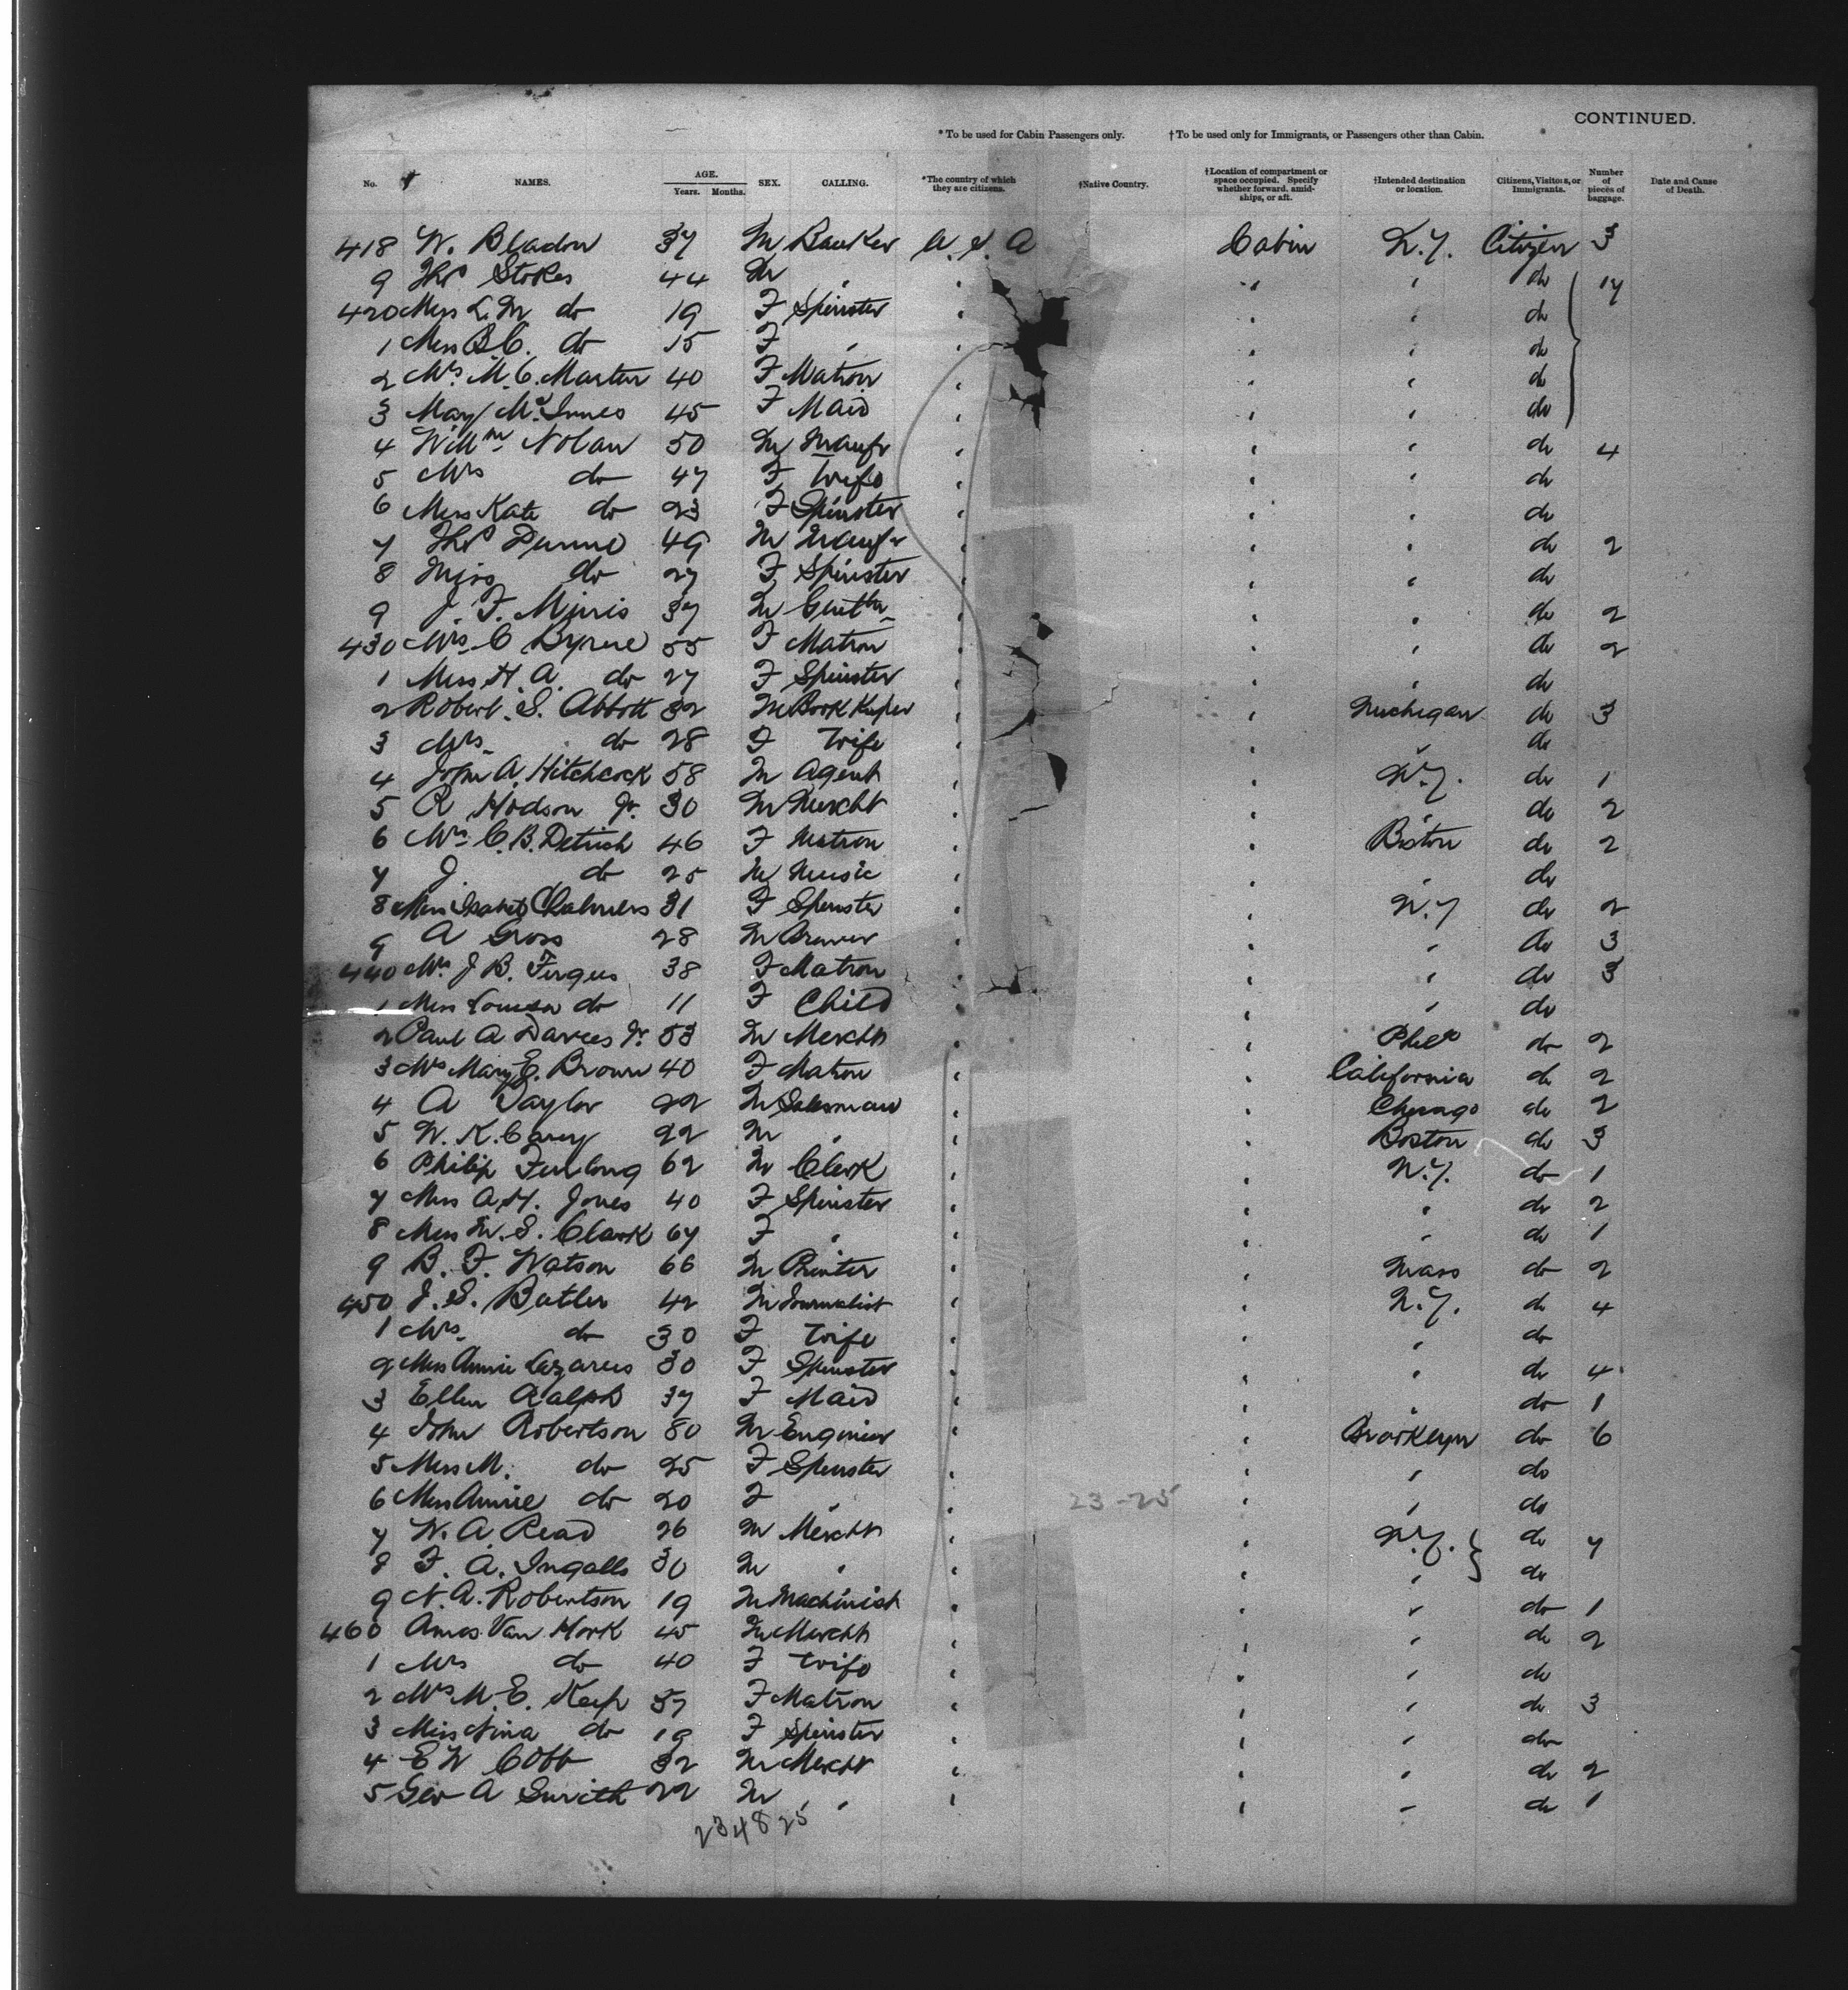 CONTINUED.
* To be used for Cabin Passengers only. † To be used only for Immigrants, or Passengers other than Cabin.
No. NAMES. AGE. Years. Months. SEX. CALLING. *The country of which they are citizens. †Native Country. †Location of compartment or space occupied. Specify whether forward, amidships, or aft. †Intended destination or location. Citizens, Visitors, or Immigrants. Number of pieces of baggage. Date and Cause of Death.
418 W. Bladon 37 M Banker U. S. A Cabin N.Y. Citizen 3
9 Thos Stokes 44 M " " " " do 17
420 Miss L. M do 19 F Spinster " " " do
1 Miss B C. do 15 F " " " " do
2 Mrs M. C. Martin 40 F Matron " " " do
3 Mary McInnes 45 F Maid " " " do
4 Willm Nolan 50 M Manufr " " " do 4
5 Mrs do 47 F Wife " " " do
6 Miss Kate do 23 F Spinster " " " do
7 Thos Dunne 49 M Manufr " " " do 2
8 Miss do 27 F Spinster " " " do
9 J. F. Minis 37 M Gentln " " " do 2
430 Mrs C Byrne 55 F Matron " " " do 2
1 Miss H. A. do 27 F Spinster " " " do
2 Robert. S. Abbott 32 M Book Keeper " " Michigan do 3
3 Mrs. do 28 F Wife " " " do
4 John A. Hitchcock 58 M Agent " " N.Y. do 1
5 R Hodson Jr. 30 M Mercht " " " do 2
6 Mrs C. B. Detrich 46 F Matron " " Boston do 2
7 J. do 25 M Music " " " do
8 Miss Isabel Chalmers 31 F Spinster " " N.Y do 2
9 A Gross 28 M Brewer " " " do 3
440 Mrs J B. Fergus 38 F Matron " " " do 3
1 Miss Louisa do 11 F Child " " " do
2 Paul A Davies Jr. 53 M Mercht " " Phila do 2
3 Mrs Mary E. Brown 40 F Matron " " California do 2
4 A Taylor 22 M Salesman " " Chicago do 2
5 W. K. Carey 22 M " " " Boston do 3
6 Philip Furlong 62 M Clerk " " N.Y. do 1
7 Miss A. H. Jones 40 F Spinster " " " do 2
8 Miss M. S. Clark 67 F " " " " do 1
9 B. F. Watson 66 M Printer " " Mass do 2
450 J. S. Butler 42 M Journalist " " N.Y. do 4
1 Mrs. do 30 F Wife " " " do
2 Miss Annie Lazarus 30 F Spinster " " " do 4
3 Ellen Ralph 37 F Maid " " " do 1
4 John Robertson 80 M Engineer " " Brooklyn do 6
5 Miss M. do 25 F Spinster " " " do
6 Miss Annie do 20 F " " 23-25 " " do
7 W. A. Read 26 M Mercht " " N.Y. do 7
8 F. A. Ingalls 30 M " " " " do
9 N. A. Robertson 19 M Machinist " " " do 1
460 Amos Van Hork 45 M Mercht " " " do 2
1 Mrs do 40 F Wife " " " do
2 Mrs M. E. Keep 57 F Matron " " " do 3
3 Miss Nina do 19 F Spinster " " " do
4 E W Cobb 32 M Mercht " " " do 2
5 Geo A Smith 22 M " " " " do 1
23 48 25